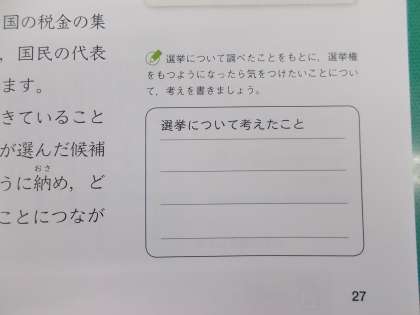 国の税金の集
，国民の代表
ます。
きていること
が選んだ候補
うに納め，ど
おさ
ことにつなが
選挙について調べたことをもとに，選挙権
をもつようになったら気をつけたいことについ
て，考えを書きましょう。
選挙について考えたこと
27